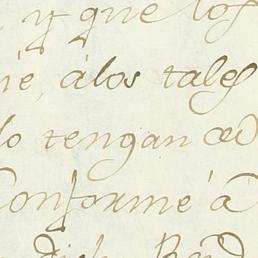 y que los
ie, álos tales
lo tengan
Conforme á